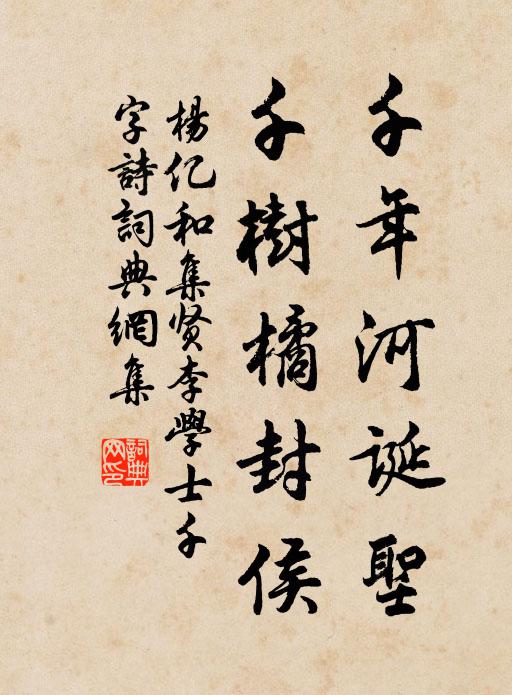 千年河诞聖
千樹橘封侯
楊亿和集贤李學士千
字詩詞典網集
詞典
网印